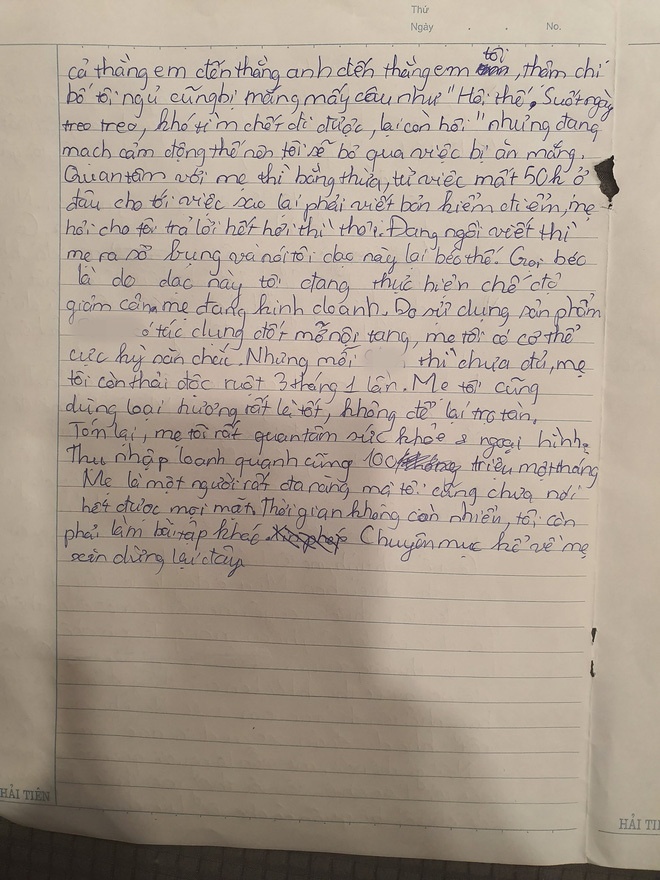 Thứ
Ngày . . No.
cả thằng em đến thằng anh đến thằng em tôi, thậm chí
bố tôi ngủ cũng bị mắng mấy câu như "Hôi thế, Suốt ngày
treo treo, khó tìm chết đi được, lại còn hôi" nhưng đang
mạch cảm động thế nên tôi sẽ bỏ qua việc bị ăn mắng.
Quan tâm với mẹ thì bằng thừa, từ việc mất 50k ở
đâu cho tới việc sao lại phải viết bản kiểm điểm, mẹ
hỏi cho tôi trả lời hết hơi thì thôi. Đang ngồi viết thì
mẹ ra sờ bụng và nói tôi dạo này lại béo thế. Gọi béo
là do dạo này tôi đang thực hiện chế độ
giảm cân mẹ đang kinh doanh. Do sử dụng sản phẩm
ó tác dụng đốt mỡ nội tạng, mẹ tôi có cơ thể
cực kỳ săn chắc. Nhưng mỗi thì chưa đủ, mẹ
tôi còn thải độc ruột 3 tháng 1 lần. Mẹ tôi cũng
dùng loại hương rất là tốt, không để lại tro tàn.
Tóm lại, mẹ tôi rất quan tâm sức khỏe & ngoại hình.
Thu nhập loanh quanh cũng 100 triệu một tháng
Mẹ là một người rất đa năng mà tôi cũng chưa nói
hết được mọi mặt. Thời gian không còn nhiều, tôi còn
phải làm bài tập khác. Chuyên mục kể về mẹ
xin dừng lại đây
HẢI TIẾN
HẢI TI